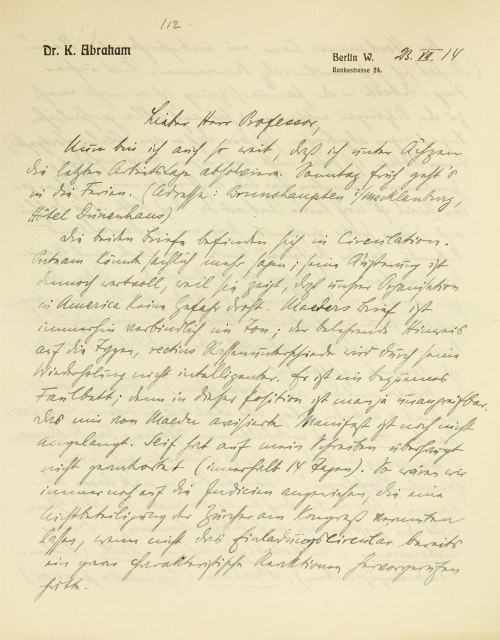 112
Dr. K. Abraham
Berlin W. 23. VII. 14
Rankestrasse 24.
Lieber Herr Professor,
Nun bin ich auch so weit, daß ich unter Ächzen
die letzten Arbeitstage absolviere. Sonntag früh geht's
in die Ferien. (Adresse: Brunshaupten i/Mecklenburg,
Hôtel Dünenhaus)
Die beiden Briefe befinden sich in Circulation.
Putnam könnte sachlich mehr sagen; seine Äußerung ist
dennoch wertvoll, weil sie zeigt, daß unsrer Organisation
in America keine Gefahr droht. Maeders Brief ist
immerhin verbindlich im Ton; der belehrende Hinweis
auf die Typen, rectius Rassenunterschiede wird durch seine
Wiederholung nicht intelligenter. Er ist ein bequemes
Faulbett; denn in dieser Position ist man ja unangreifbar.
Das mir von Maeder avisierte Manifest ist noch nicht
angelangt. Seif hat auf mein Schreiben überhaupt
nicht geantwortet (innerhalb 14 Tagen). So wären wir
immer noch auf die Indicien angewiesen, die eine
Nichtbeteiligung der Züricher am Kongreß vermuten
lassen, wenn nicht das Einladungscircular bereits
ein paar charakteristische Reaktionen hervorgerufen
hätte.